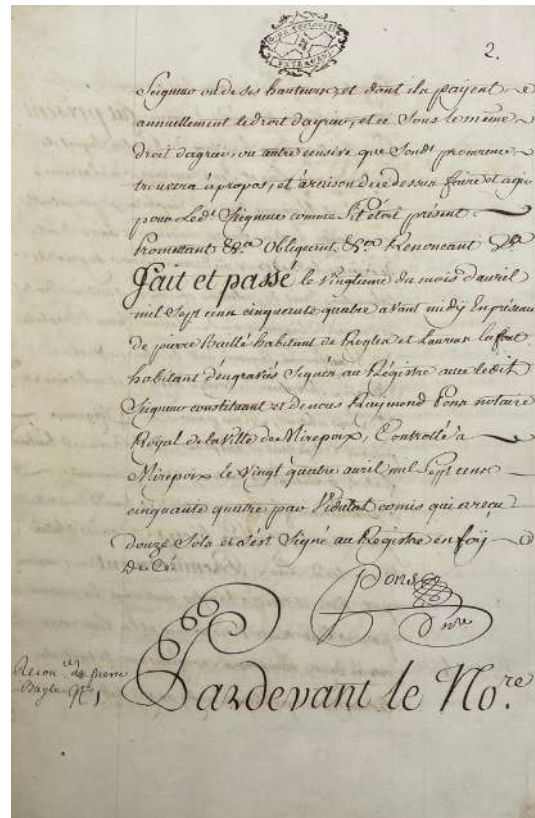 2.
Seigneur ou de ses hauteurs, et dont ils payent
annuellement le droit dagrer, et ce sous le même
droit dagrer, ou autre censive que Sondt procureur
trouvera à propos, et à raison de ce dessus faire et agir
pour Ledt Seigneur comme s'il étoit présent
Promettant &ca Obligeant &ca Renoncant &ca
Fait et passé le vingtieme du mois d'avril
mil Sept cens cinquante quatre avant midy En présence
de pierre habitant de et Laurens lafont
habitant d'engraviés Signés au Régistre avec ledit
Seigneur constituant et de nous Raymond Pons notaire
Royal de la Ville de Mirepoix, Controllé à
Mirepoix le vingt quatre avril mil Sept cens
cinquante quatre par Vidalat comis qui a reçu
douze Sols et s'est Signé au Régistre en foÿ
De Ce
Pons
nre
Recon de pierre
Bayle
Pardevant le No.re